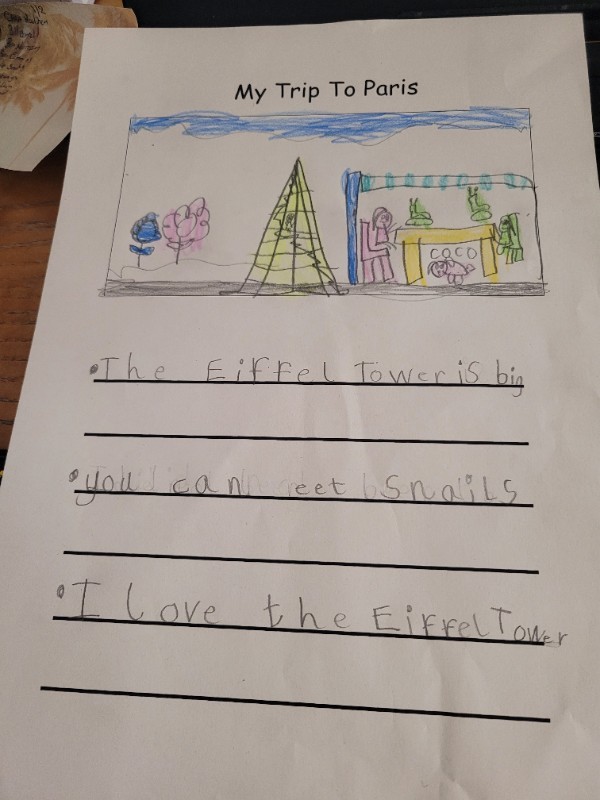 My Trip To Paris
COCO
•The Eiffel Tower is big
•you can eet Snails
•I love the Eiffel Tower